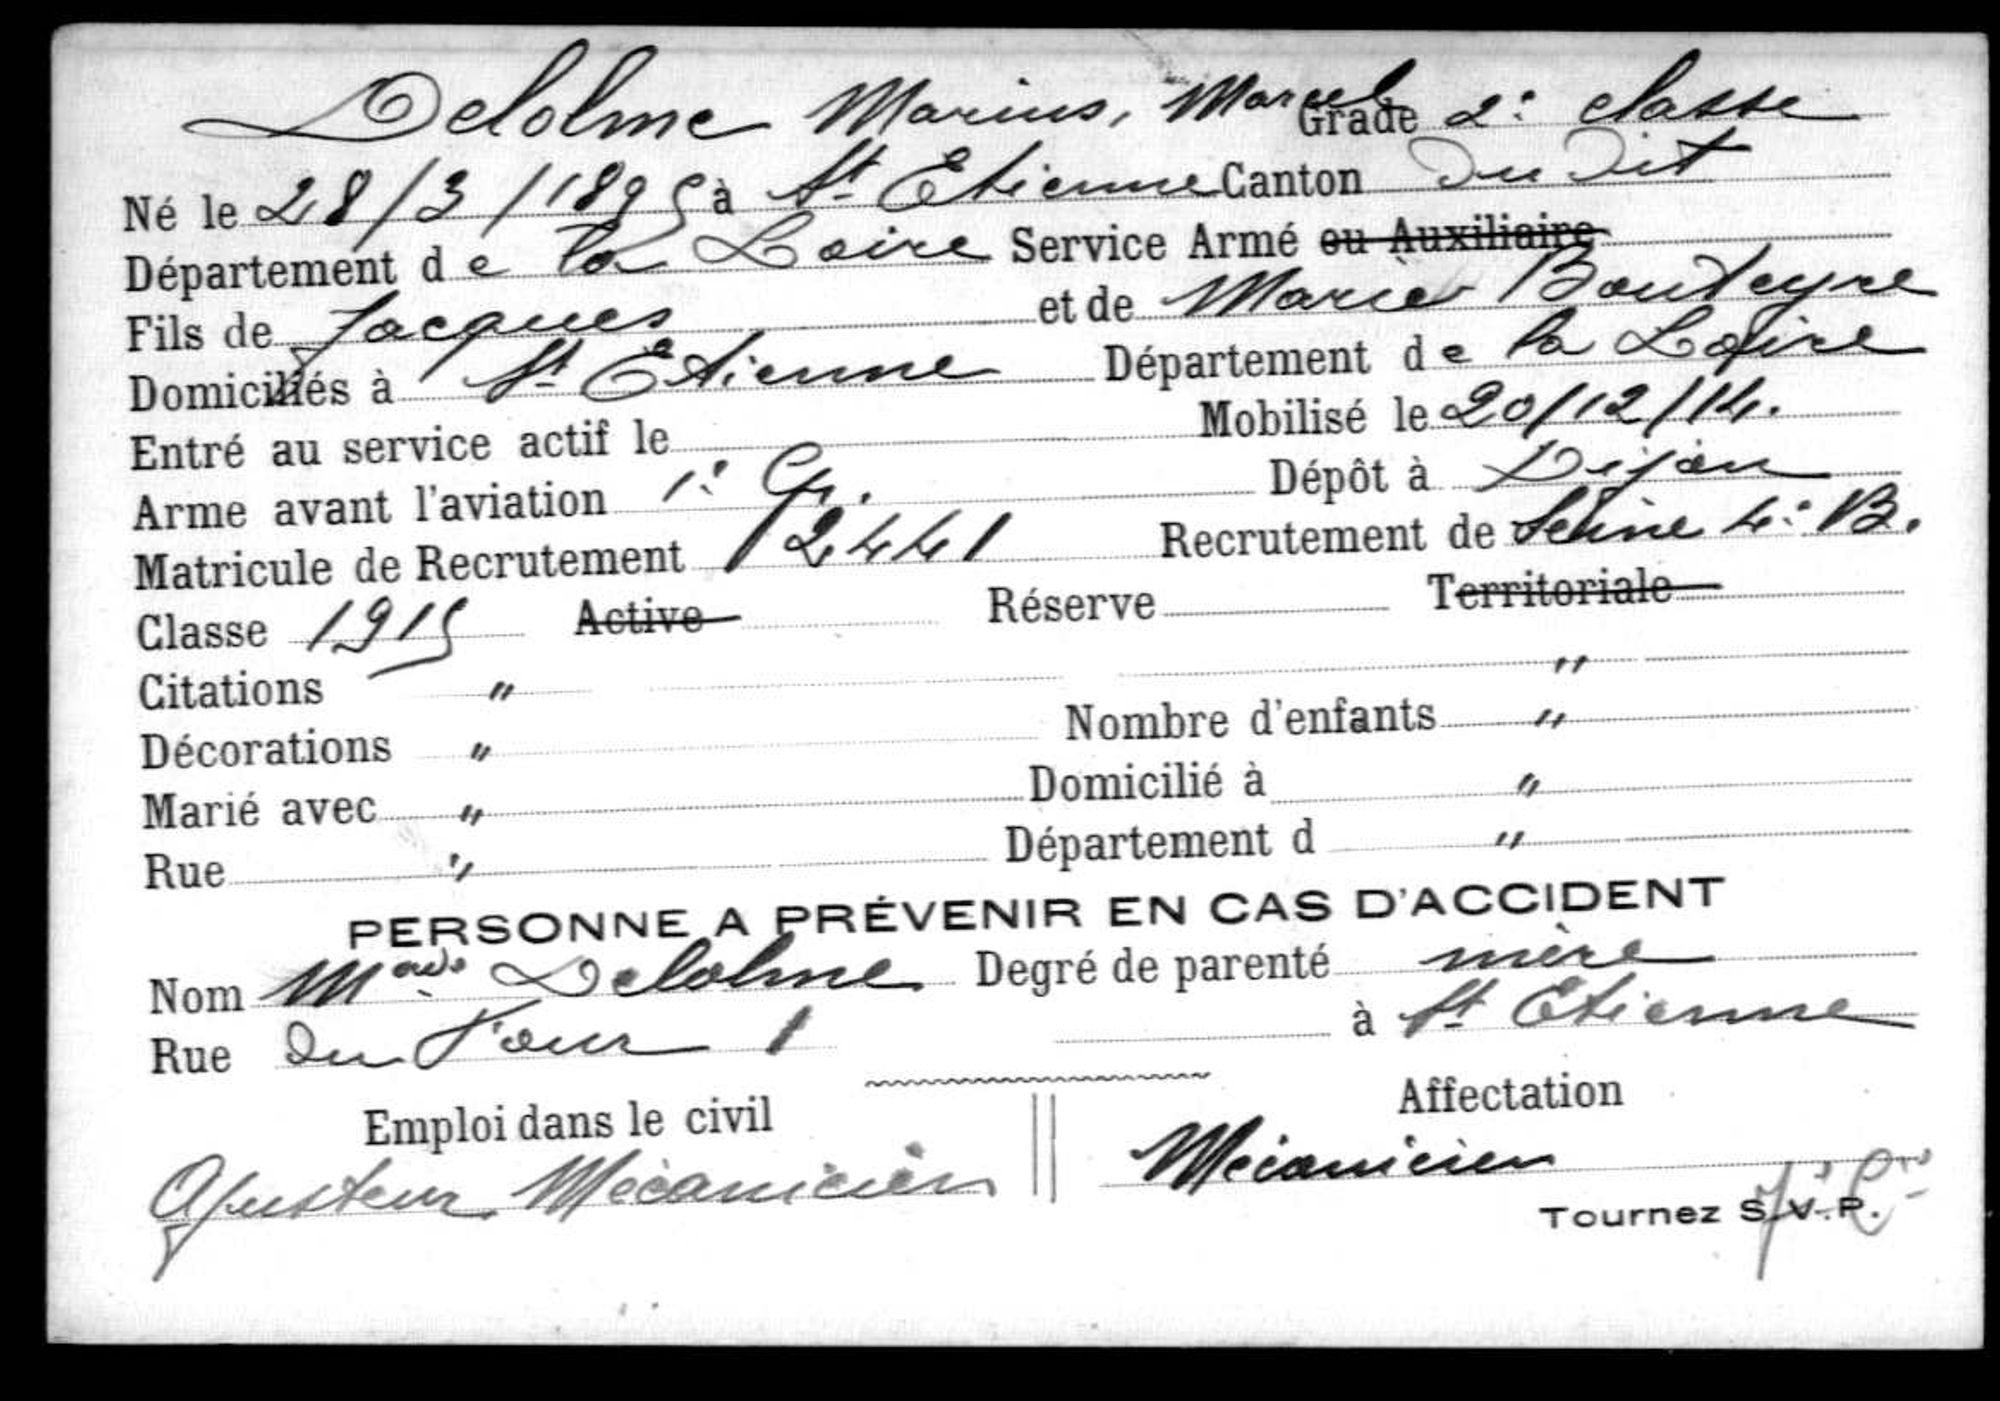 Delolme Marius, Marcel Grade 2e classe
Né le 28/3/1895 à St Etienne Canton du dit
Département de la Loire Service Armé ou Auxiliaire
Fils de Jacques et de Marie Bouteyre
Domiciliés à St Etienne Département de la Loire
Entré au service actif le Mobilisé le 20/12/14.
Arme avant l'aviation 1er Gr. Dépôt à Dijon
Matricule de Recrutement 2441 Recrutement de Seine 4e B.
Classe 1915 Active Réserve Territoriale
Citations " "
Décorations " Nombre d'enfants "
Marié avec " Domicilié à "
Rue " Département d "
PERSONNE A PRÉVENIR EN CAS D'ACCIDENT
Nom Delolme Degré de parenté mère
Rue du 1 à St Etienne
Emploi dans le civil Affectation
Ajusteur Mécanicien Mécanicien
Tournez S.V.P.